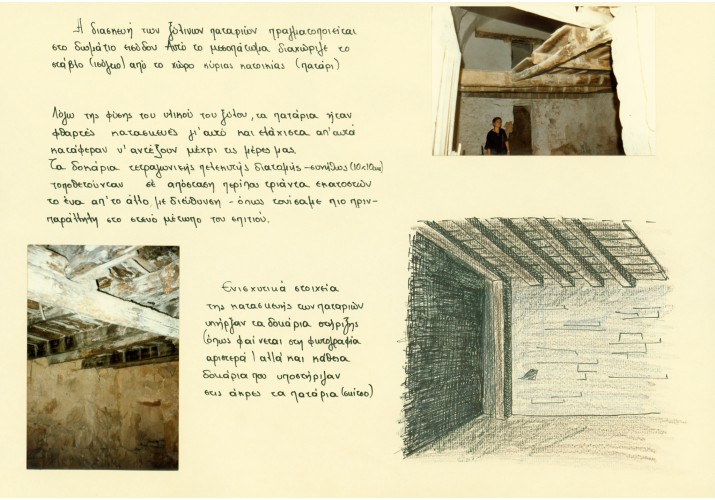 Η διασκευή των ξύλινων παταριών πραγματοποιείται
στο δωμάτιο εισόδου Αυτό το μεσοπάτωμα διαχώριζε το
στάβλο (ισόγειο) από το χώρο κύριας κατοικίας (πατάρι)
Λόγω της φύσης του υλικού του ξύλου, τα πατάρια ήταν
φθαρτές κατασκευές γι'αυτό και ελάχιστα απ'αυτά
κατάφεραν ν' αντέξουν μέχρι τις μέρες μας
Τα δοκάρια τετραγωνικής πελεκητής διατομής -συνήθως (10×10cm)
τοποθετούνταν σε απόσταση περίπου τριάντα εκατοστών
το ένα απ'το άλλο, με διεύθυνση - όπως τονίσαμε πιο πριν-
παράλληλη στο στενό μέτωπο του σπιτιού.
Ενισχυτικά στοιχεία
της κατασκευής των παταριών
υπήρξαν τα δοκάρια στήριξης
(όπως φαίνεται στη φωτογραφία
αριστερά) αλλά και κάθετα
δοκάρια που υποστήριζαν
στις άκρες τα πατάρια (σκίτσο)